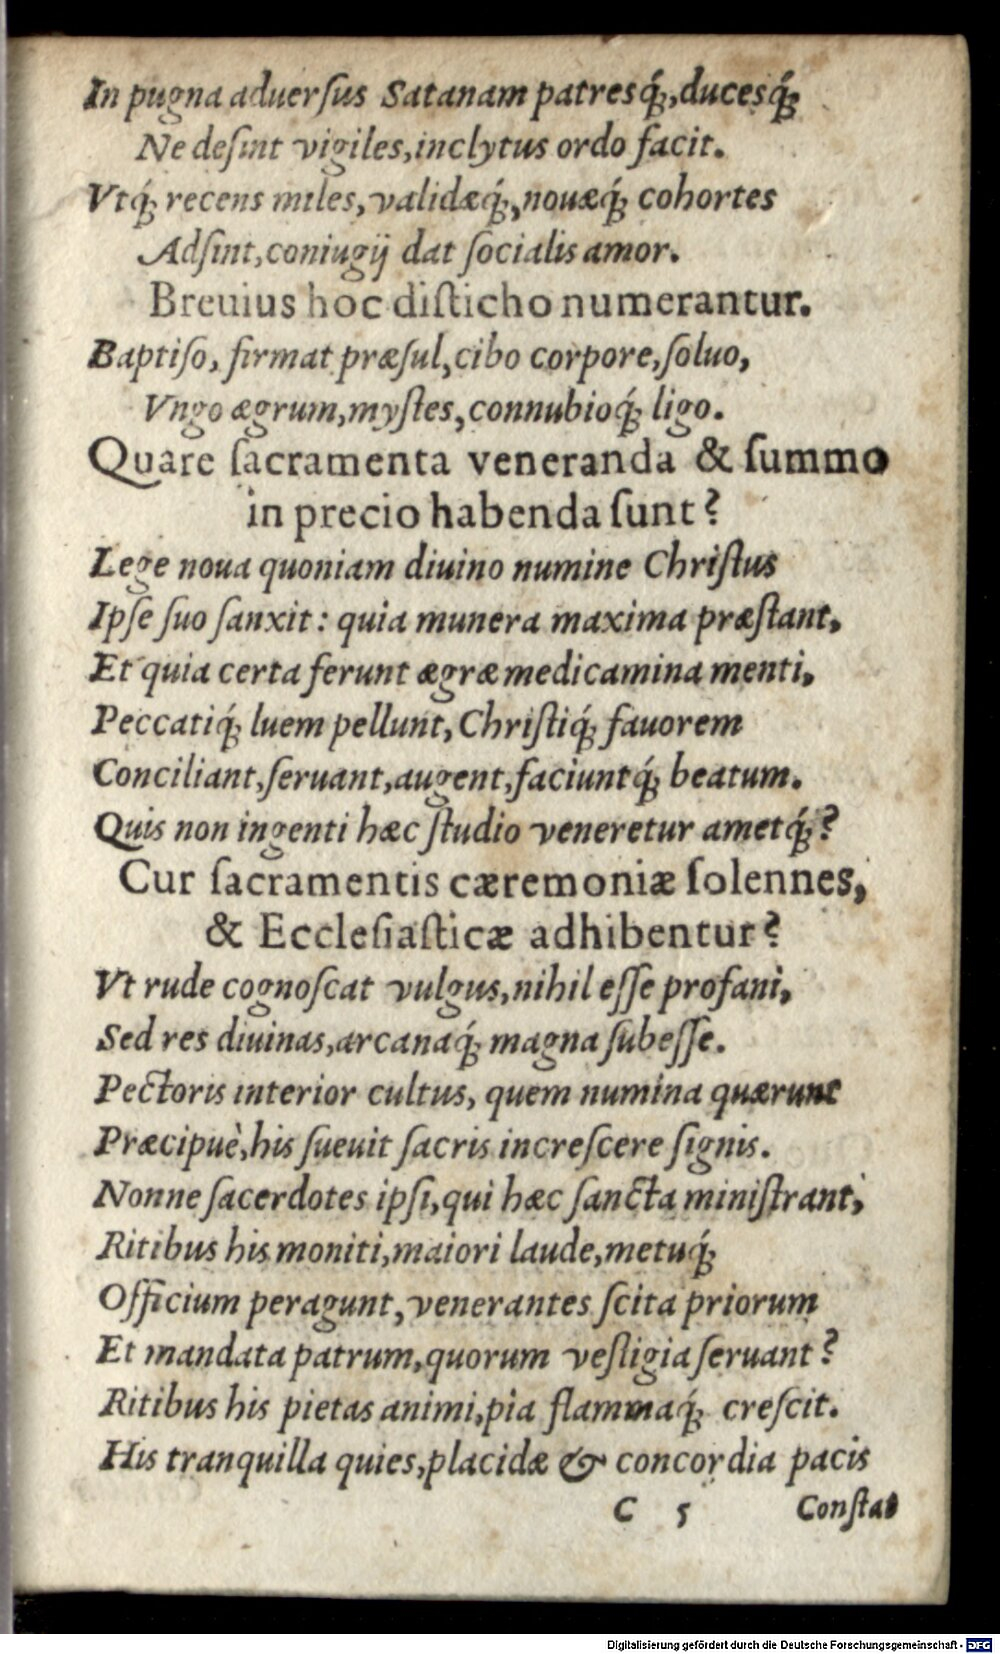 In pugna aduerſus Satanam patresq́;, ducesq́;
Ne deſint vigiles, inclytus ordo facit.
Vtq́; recens miles, validæq́;, nouæq́; cohortes
Adſint, coniugij dat ſocialis amor.
Breuius hoc diſticho numerantur.
Baptiſo, firmat præſul, cibo corpore, ſoluo,
Vngo ægrum, myſtes, connubioq́; ligo.
Quare ſacramenta veneranda & ſummo
in precio habenda ſunt?
Lege noua quoniam diuino numine Chriſtus
Ipſe ſuo ſanxit: quia munera maxima præſtant,
Et quia certa ferunt ægræ medicamina menti,
Peccatiq́; luem pellunt, Chriſtiq́; fauorem
Conciliant, ſeruant, augent, faciuntq́; beatum.
Quis non ingenti hæc ſtudio veneretur ametq́;?
Cur ſacramentis cæremoniæ ſolennes,
& Eccleſiaſticæ adhibentur?
Vt rude cognoſcat vulgus, nihil eſſe profani,
Sed res diuinas, arcanaq́; magna ſubeſſe.
Pectoris interior cultus, quem numina quærunt
Præcipuè, his ſueuit ſacris increſcere ſignis.
Nonne ſacerdotes ipſi, qui hæc ſancta miniſtrant,
Ritibus his moniti, maiori laude, metuq́;
Officium peragunt, venerantes ſcita priorum
Et mandata patrum, quorum veſtigia ſeruant?
Ritibus his pietas animi, pia flammaq́; creſcit.
His tranquilla quies, placidæ & concordia pacis
C 5 Conſtat
Digitalisierung gefördert durch die Deutsche Forschungsgemeinschaft - DFG